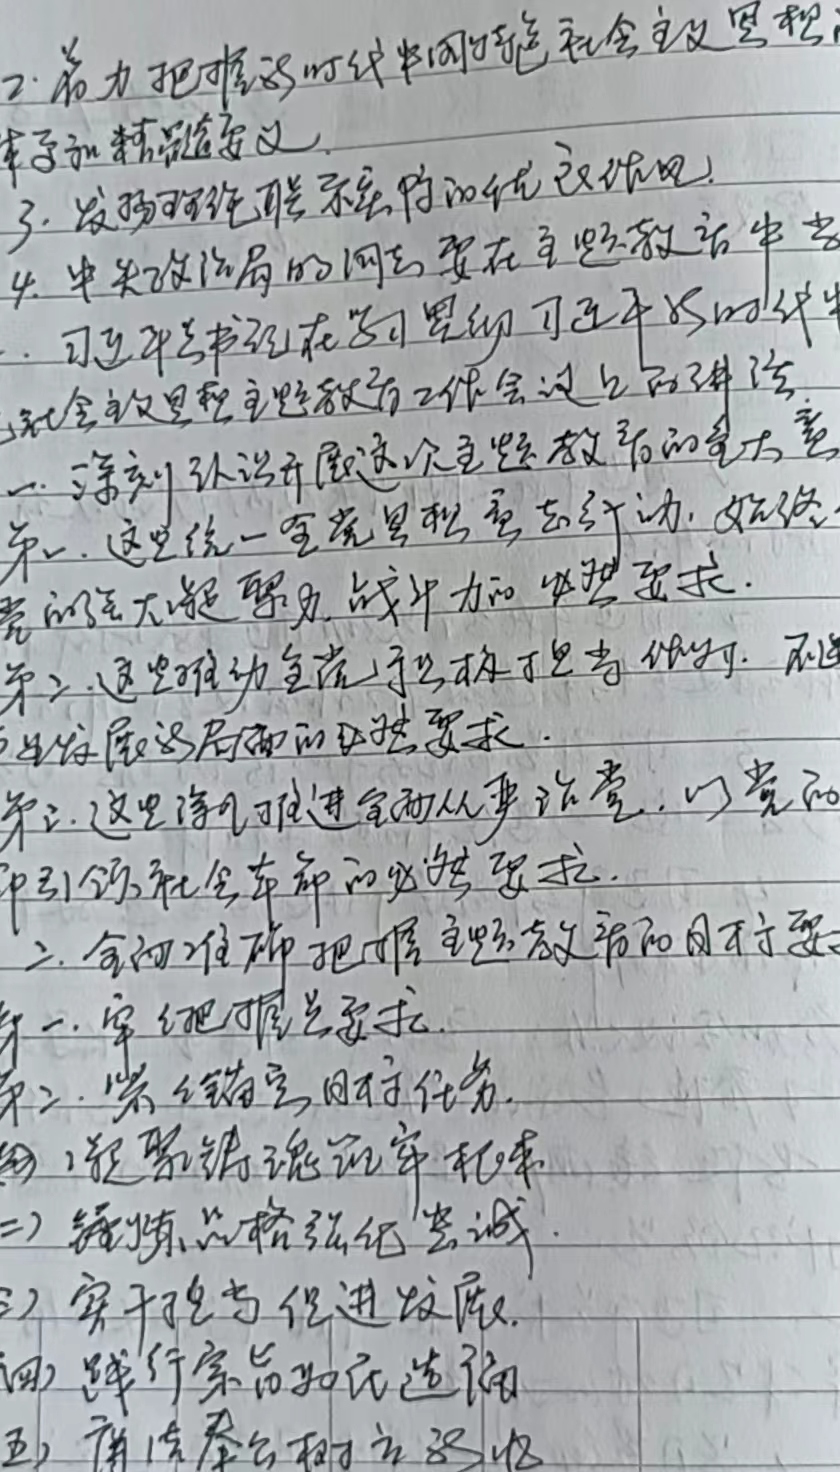 2. 着力把握新时代中国特色社会主义思想
体系和精髓要义.
3. 发扬理论联系实际的优良作风.
4. 中央政治局的同志要在主题教育中
习近平总书记在学习贯彻习近平新时代中
社会主义思想主题教育工作会议上的讲话.
一. 深刻认识开展这次主题教育的重大意
第一. 这是统一全党思想意志行动. 始终
党的强大凝聚力. 战斗力的必然要求.
第二. 这是推动全党积极担当作为. 不
发展新局面的必然要求.
第三. 这是深入推进全面从严治党. 以党的
引领社会革命的必然要求.
二. 全面准确把握主题教育的目标要
第一. 牢牢把握总要求.
第二. 紧紧锚定目标任务.
凝聚铸魂筑牢根本
二) 锤炼品格强化忠诚.
三) 实干担当促进发展.
四) 践行宗旨为民造福
五) 廉洁奉公树立新